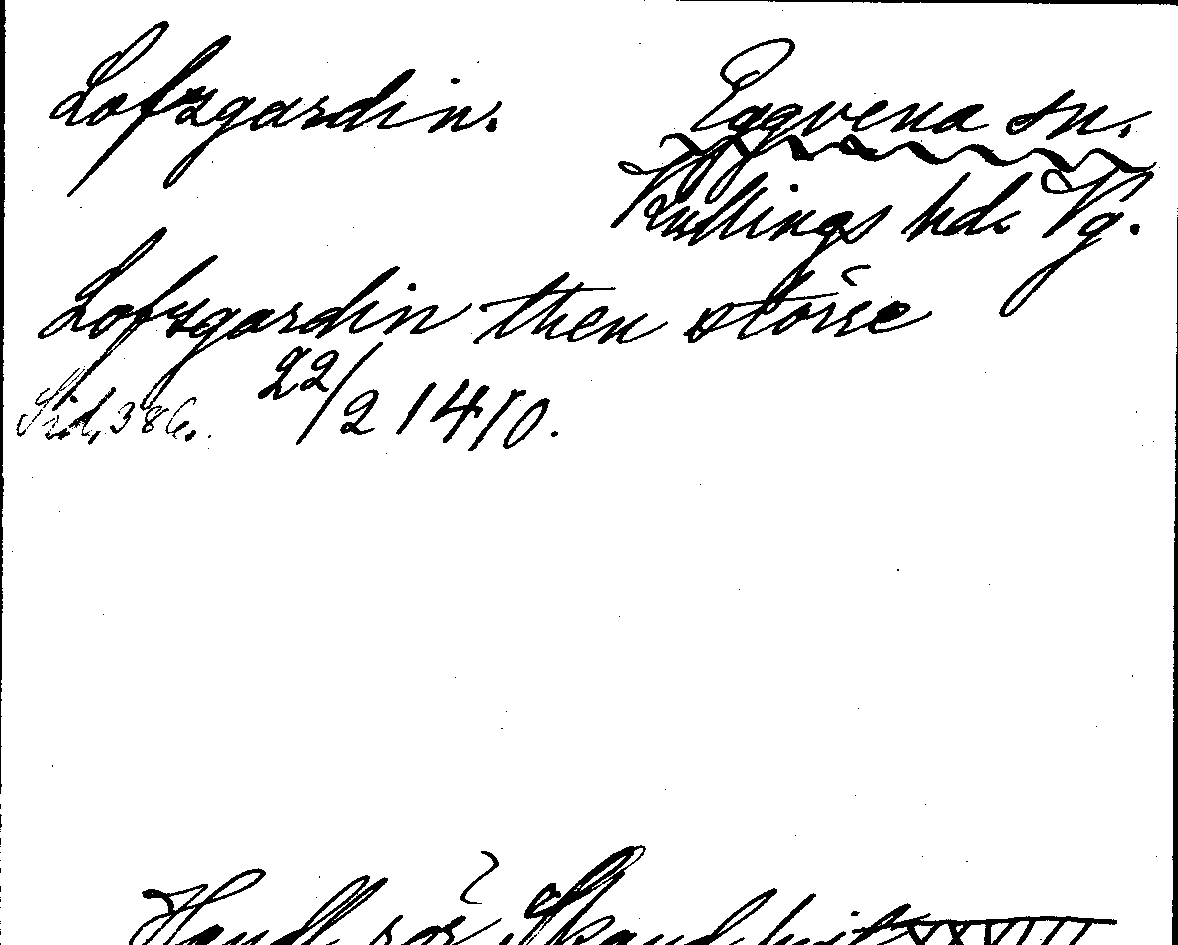 Lofzgardin. Eggvena sn.
Kullings hd. Vg.
Lofzgardin then störse
Sid. 386. 22/2 1410.
Handl. rör Skand. hist. XXVIII